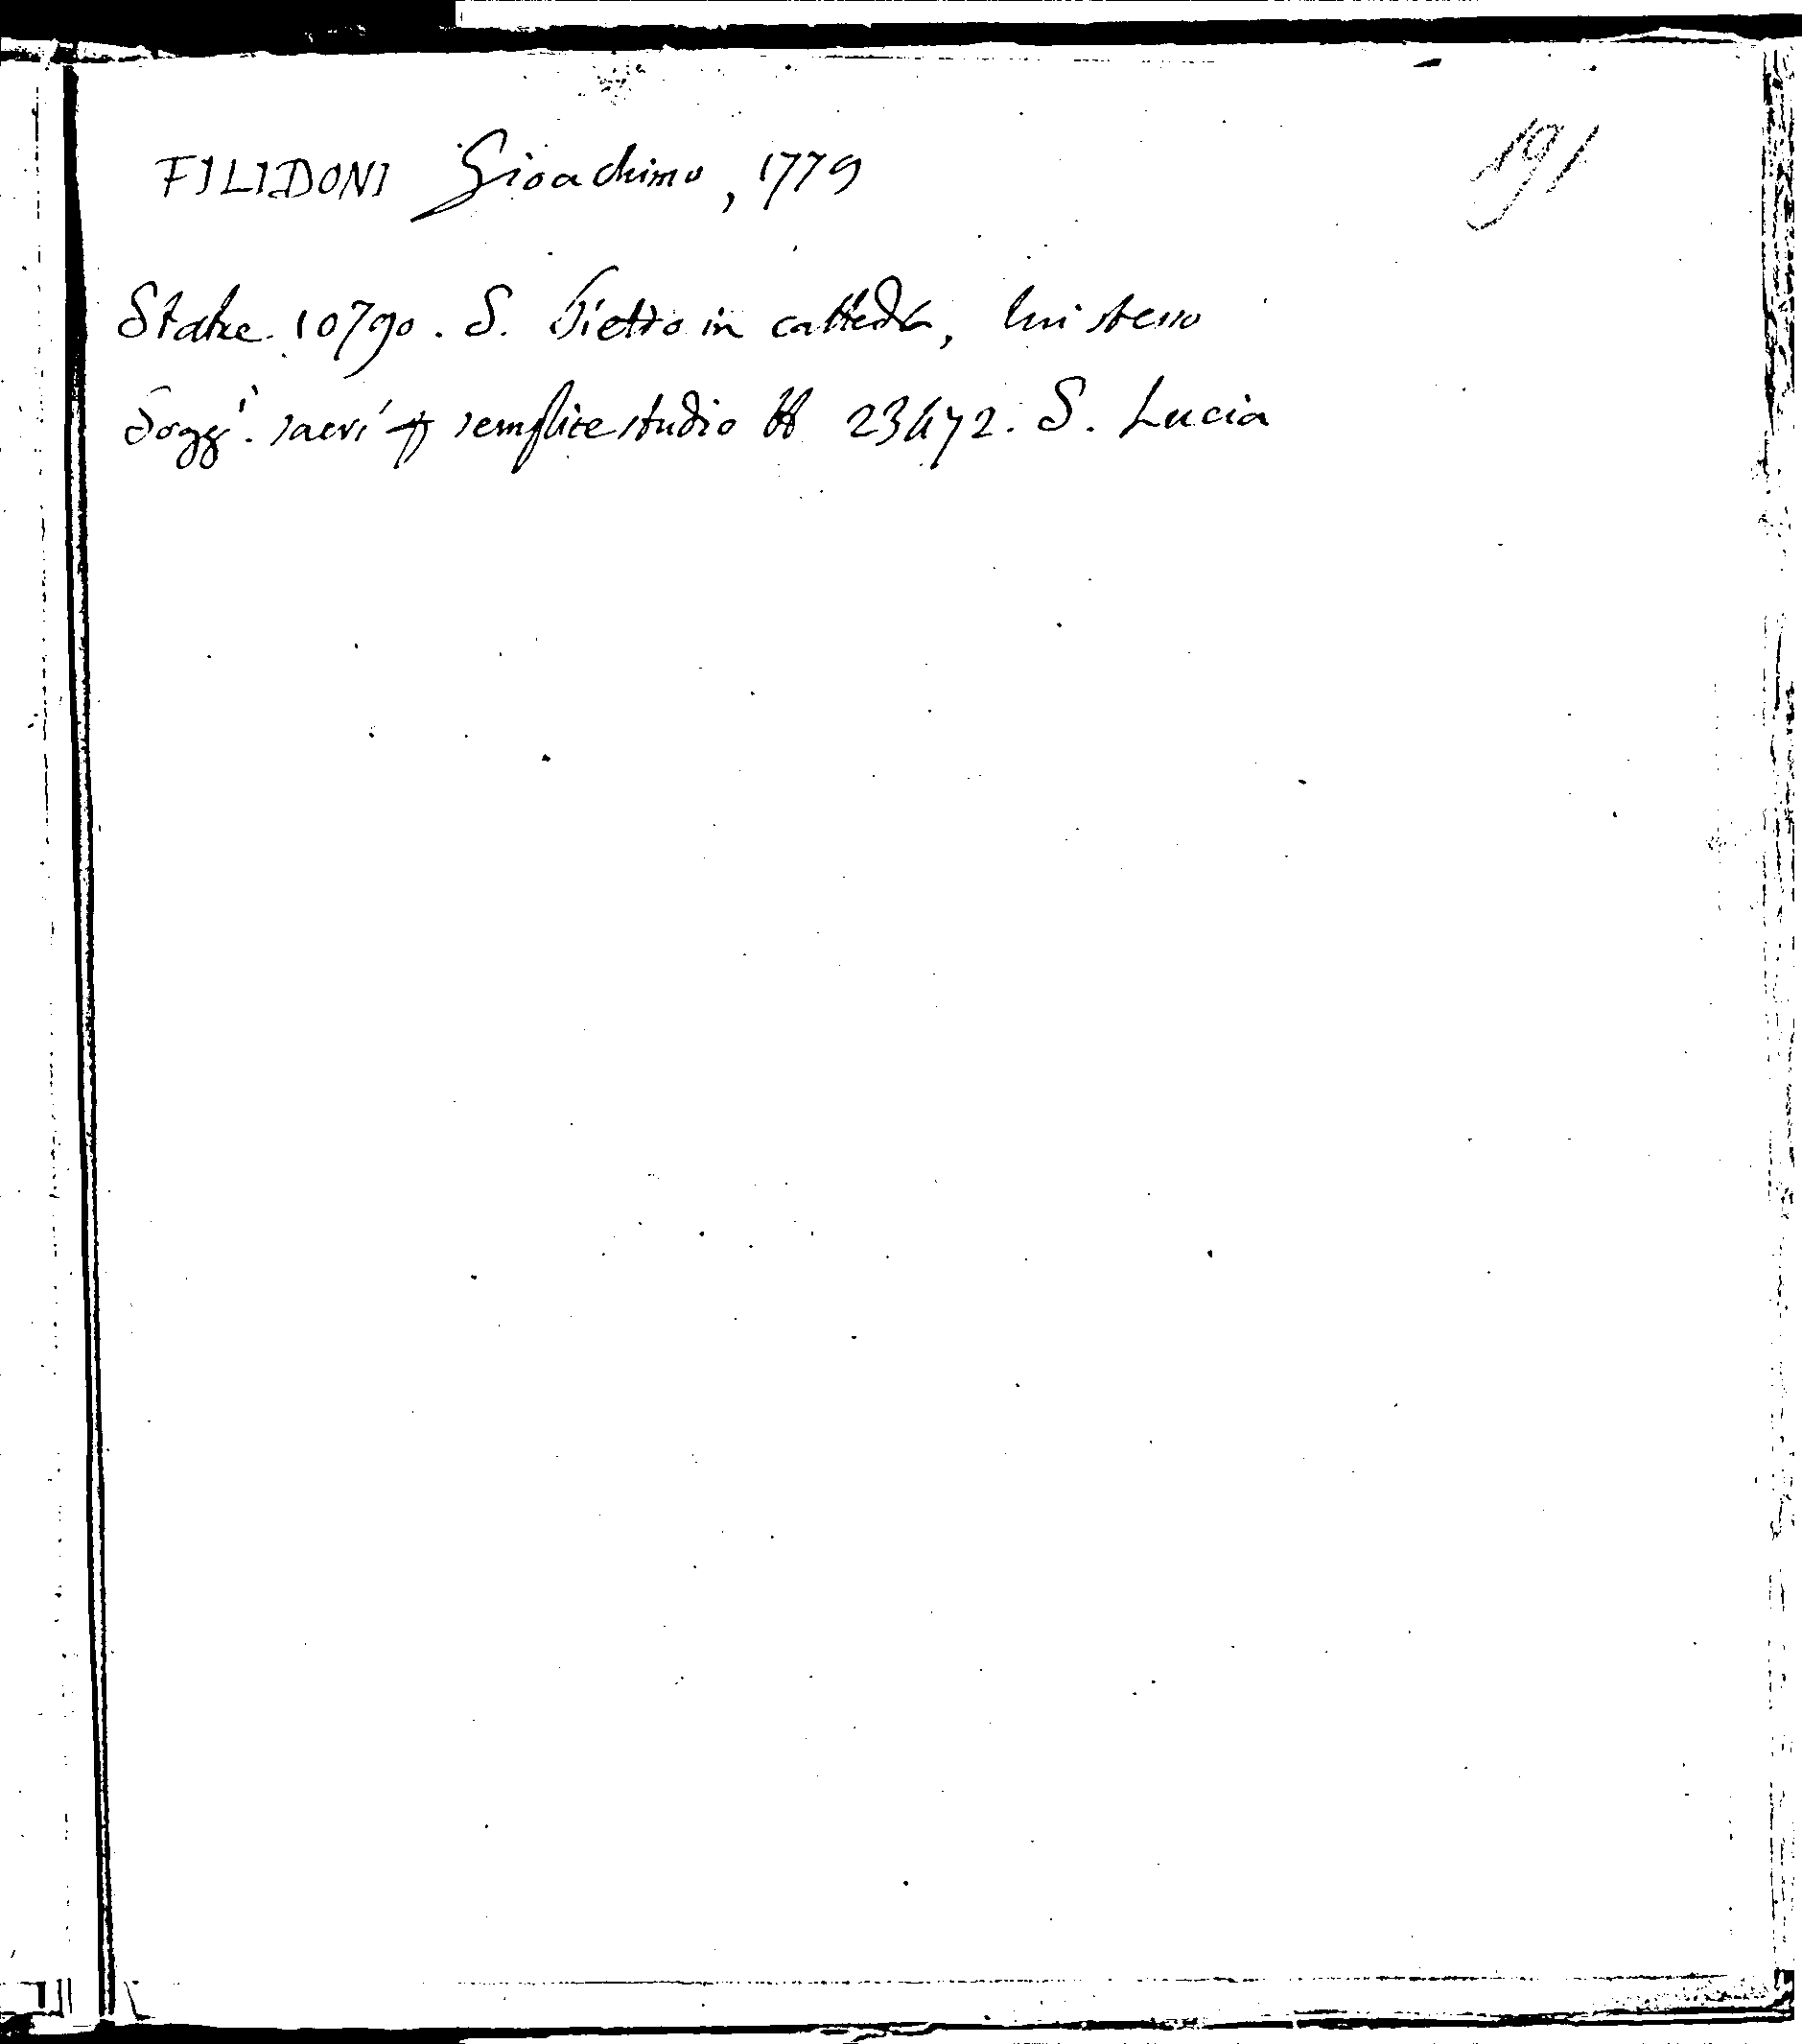 FILIDONI Gioachimo, 1779
191
Statue. 10790. S. Pietro in cattedra, lui stesso
Sogg.i sacri semplice studio 23472. S. Lucia